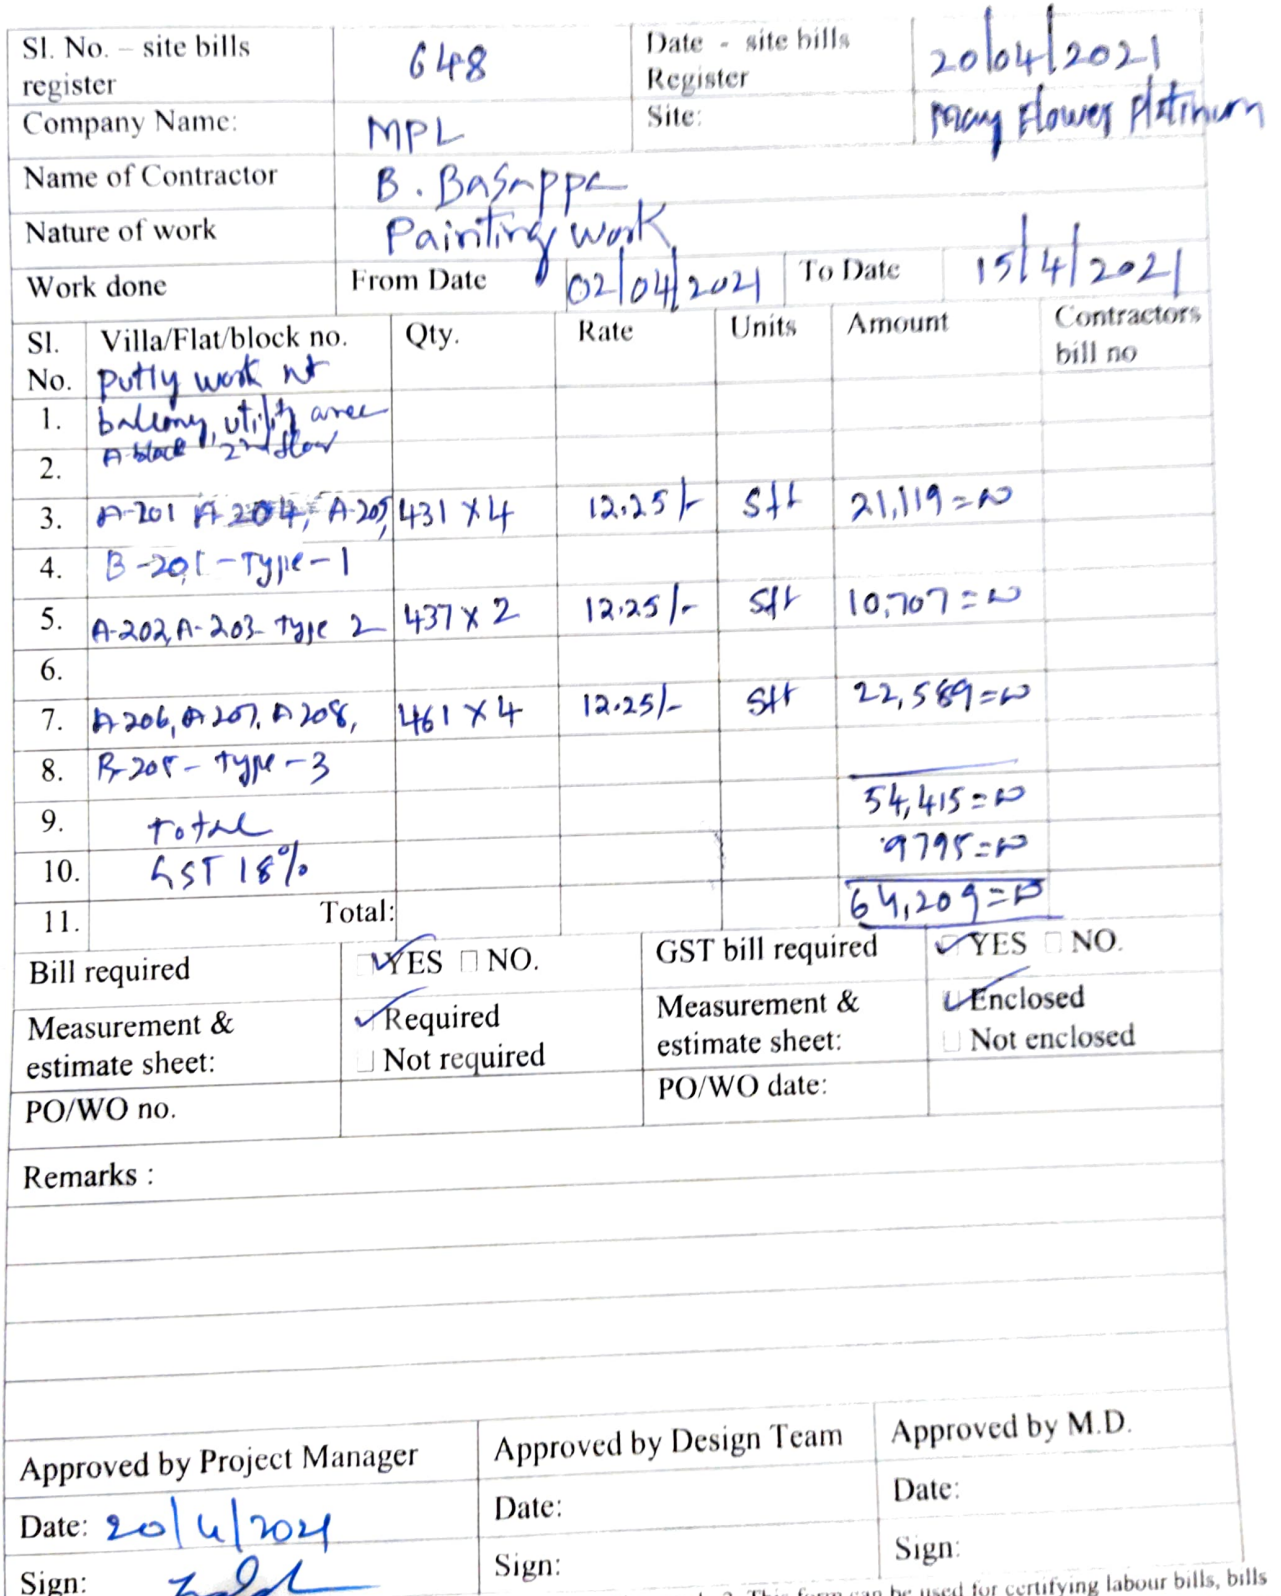 Sl. No. – site bills register 648 Date - site bills Register 20/04/2021
Company Name: MPL Site: May Flower Platinum
Name of Contractor B. Basappa
Nature of work Painting work
Work done From Date 02/04/2021 To Date 15/4/2021
Sl. No. Villa/Flat/block no. Qty. Rate Units Amount Contractors bill no
putty work nt
1. balcony, utility area
A block 2nd floor
2.
3. A-201 A 204, A-205, 431 x 4 12.25/- Sft 21,119=00
4. B-201 - Type-1
5. A-202, A-203 type 2 437 x 2 12.25/- Sft 10,707=00
6.
7. A 206, A 207, A 208, 461 x 4 12.25/- Sft 22,589=00
8. B-205 - type-3
9. Total 54,415=00
10. GST 18% 9795=00
11. Total: 64,209=00
Bill required YES NO. GST bill required YES NO.
Measurement & estimate sheet: Required Not required Measurement & estimate sheet: Enclosed Not enclosed
PO/WO no. PO/WO date:
Remarks :
Approved by Project Manager Approved by Design Team Approved by M.D.
Date: 20/4/2021 Date: Date:
Sign: Sign: Sign:
This form can be used for certifying labour bills, bills